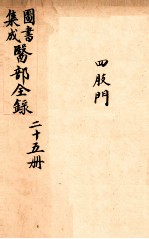 圖書
集成
醫部全錄
二十五册
四肢門